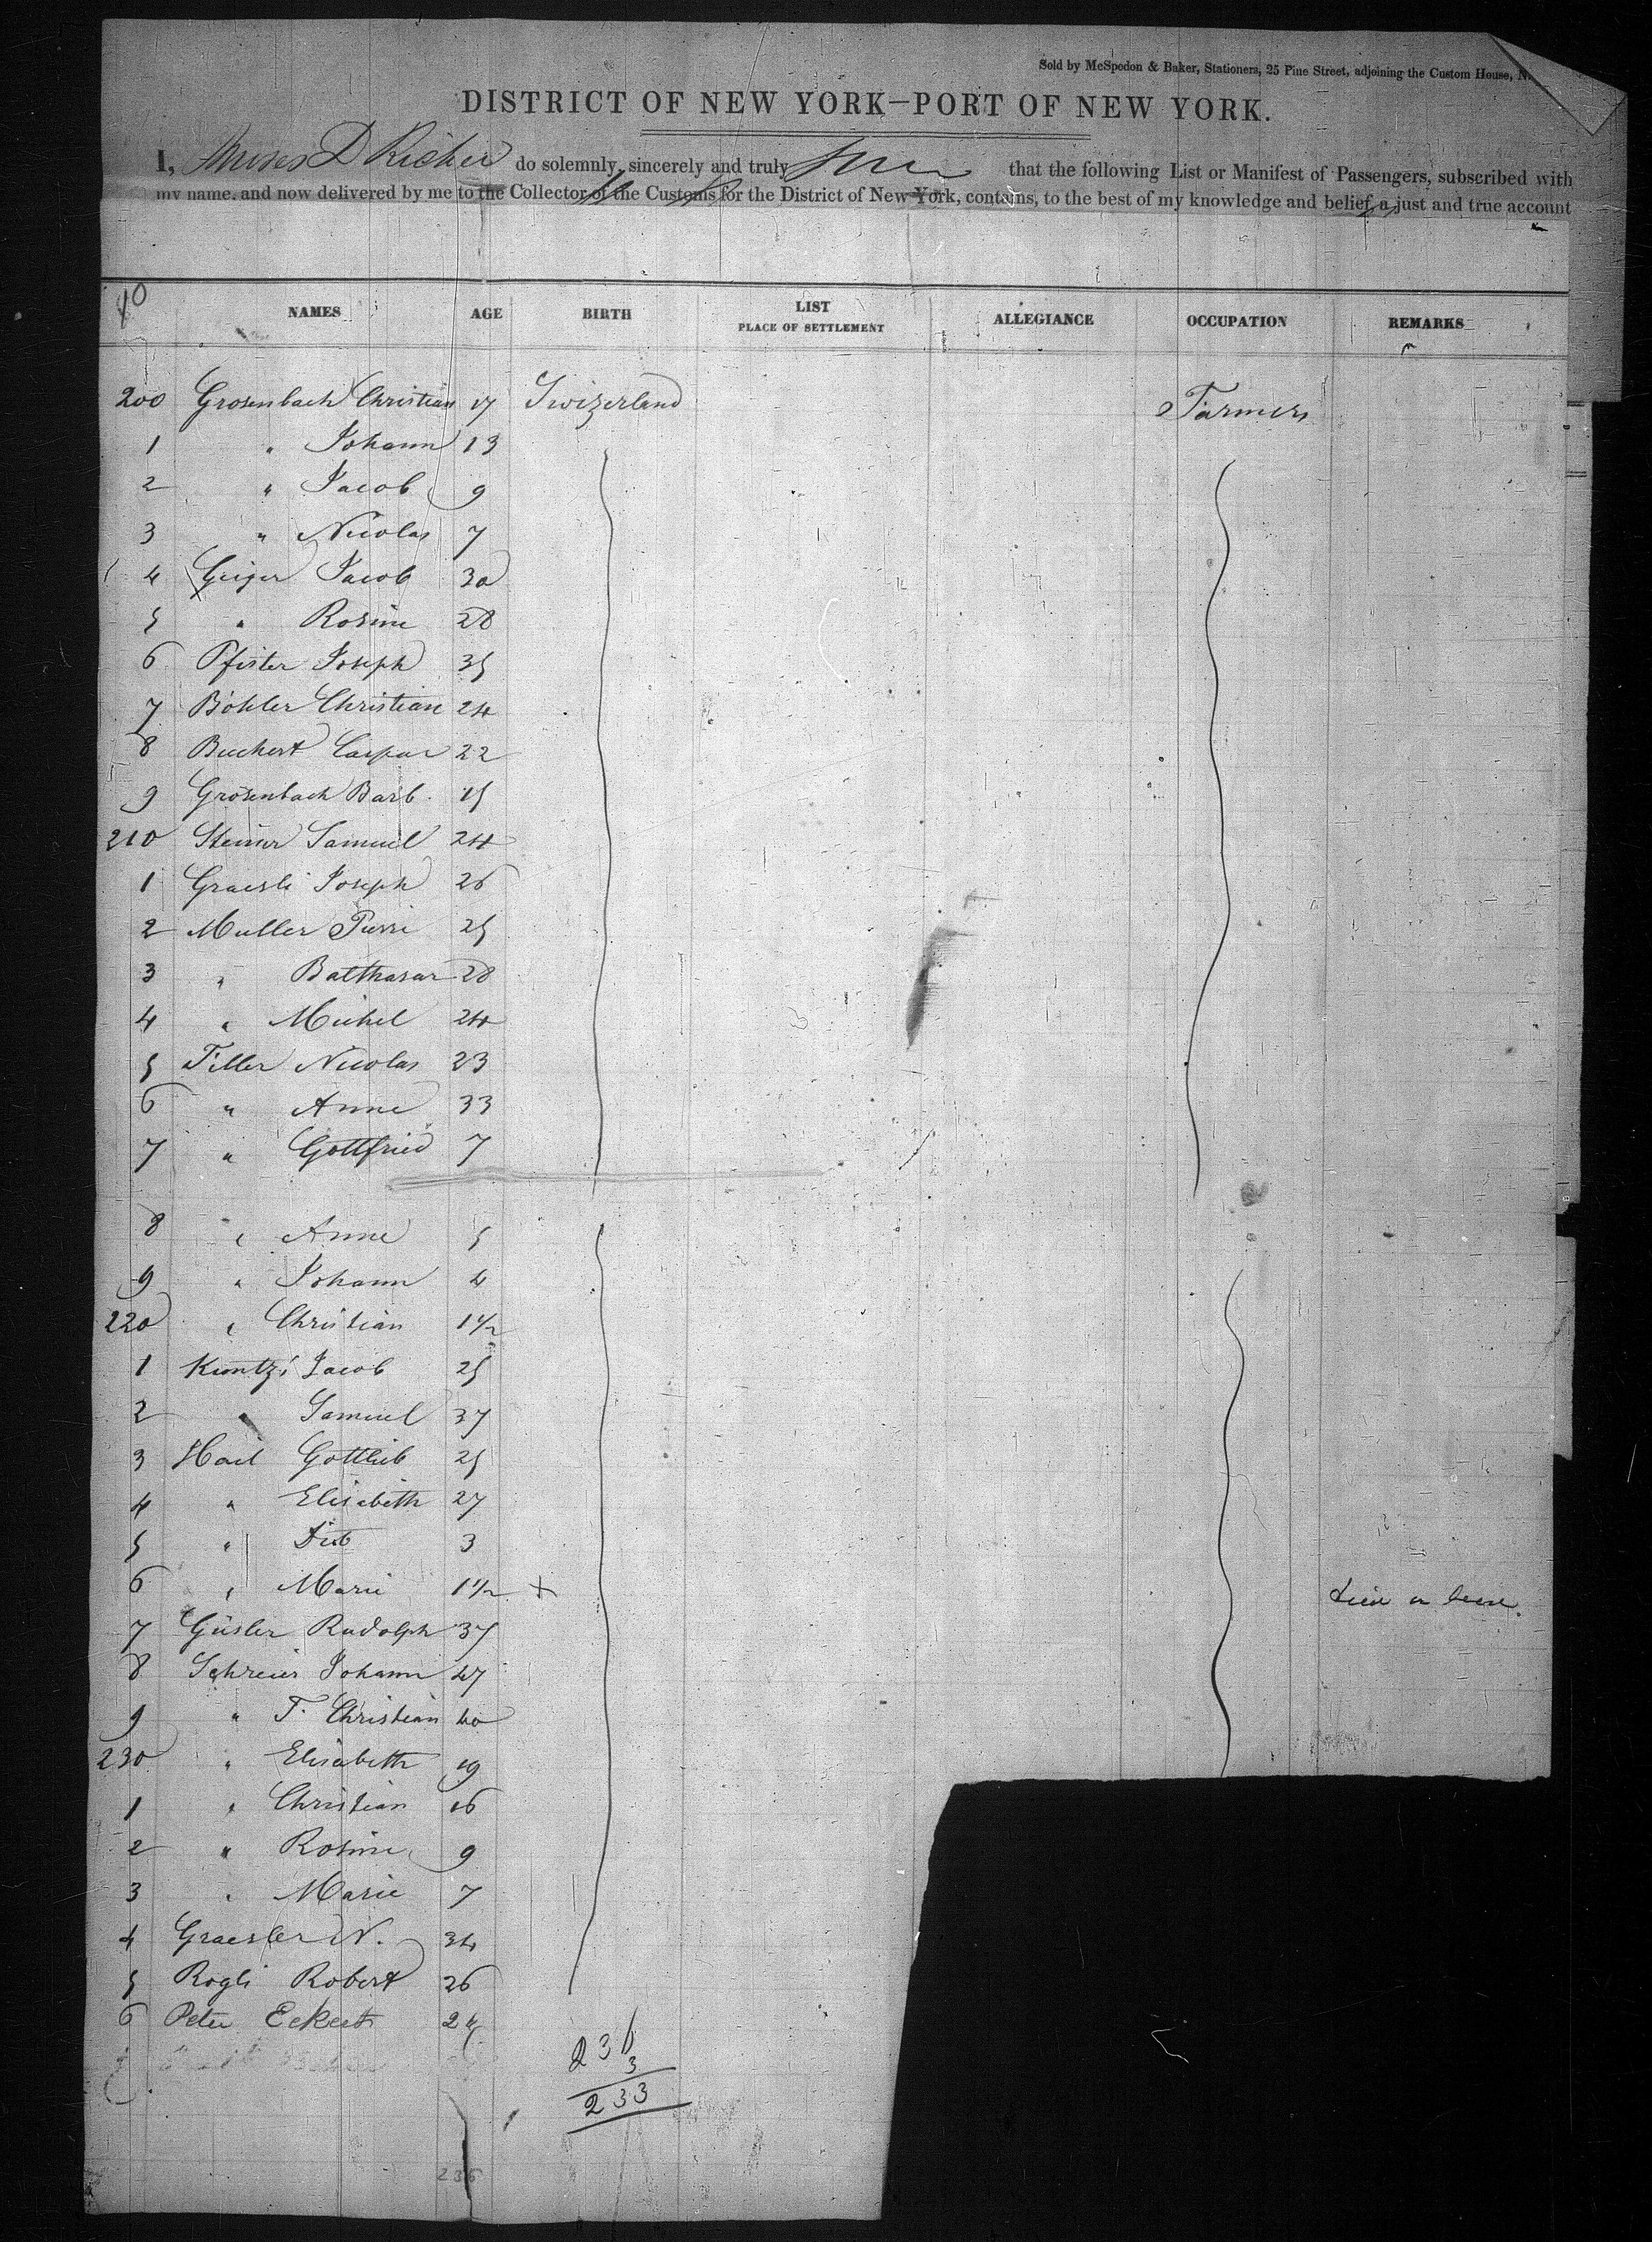 Sold by McSpedon & Baker, Stationers, 25 Pine Street, adjoining the Custom House, N.
DISTRICT OF NEW YORK—PORT OF NEW YORK.
I, Moses D Ricker do solemnly, sincerely and truly that the following List or Manifest of Passengers, subscribed with
my name, and now delivered by me to the Collector of the Customs for the District of New York, contains, to the best of my knowledge and belief, a just and true account
NAMES AGE BIRTH LIST PLACE OF SETTLEMENT ALLEGIANCE OCCUPATION REMARKS
200 Grosenbach Christian 17 Swizerland Farmers
1 " Johann 13
2 " Jacob 9
3 " Nicolas 7
4 Geiger Jacob 30
5 " Rosine 28
6 Pfister Joseph 35
7 Böhler Christian 24
8 Buchert Caspar 22
9 Grosenbach Barb. 15
210 Steiner Samuel 24
1 Graesli Joseph 26
2 Muller 25
3 " Balthasar 28
4 " Michel 24
5 Filler Nicolas 23
6 " Anne 33
7 " Gottfried 7
8 " Anne 5
9 " Johann 4
220 " Christian 1½
1 Kuntzi Jacob 25
2 " Samuel 37
3 Gottlieb 25
4 " Elisabeth 27
5 " 3
6 " Marie 1½ +
7 Gisler Rudolph 37
8 Schreier Johann 47
9 " F. Christian 40
230 " Elisabeth 19
1 " Christian 16
2 " Rosine 9
3 " Marie 7
4 Graesler N. 34
5 Rogli Robert 26
6 Peter Eckert 24
236
3
233
236